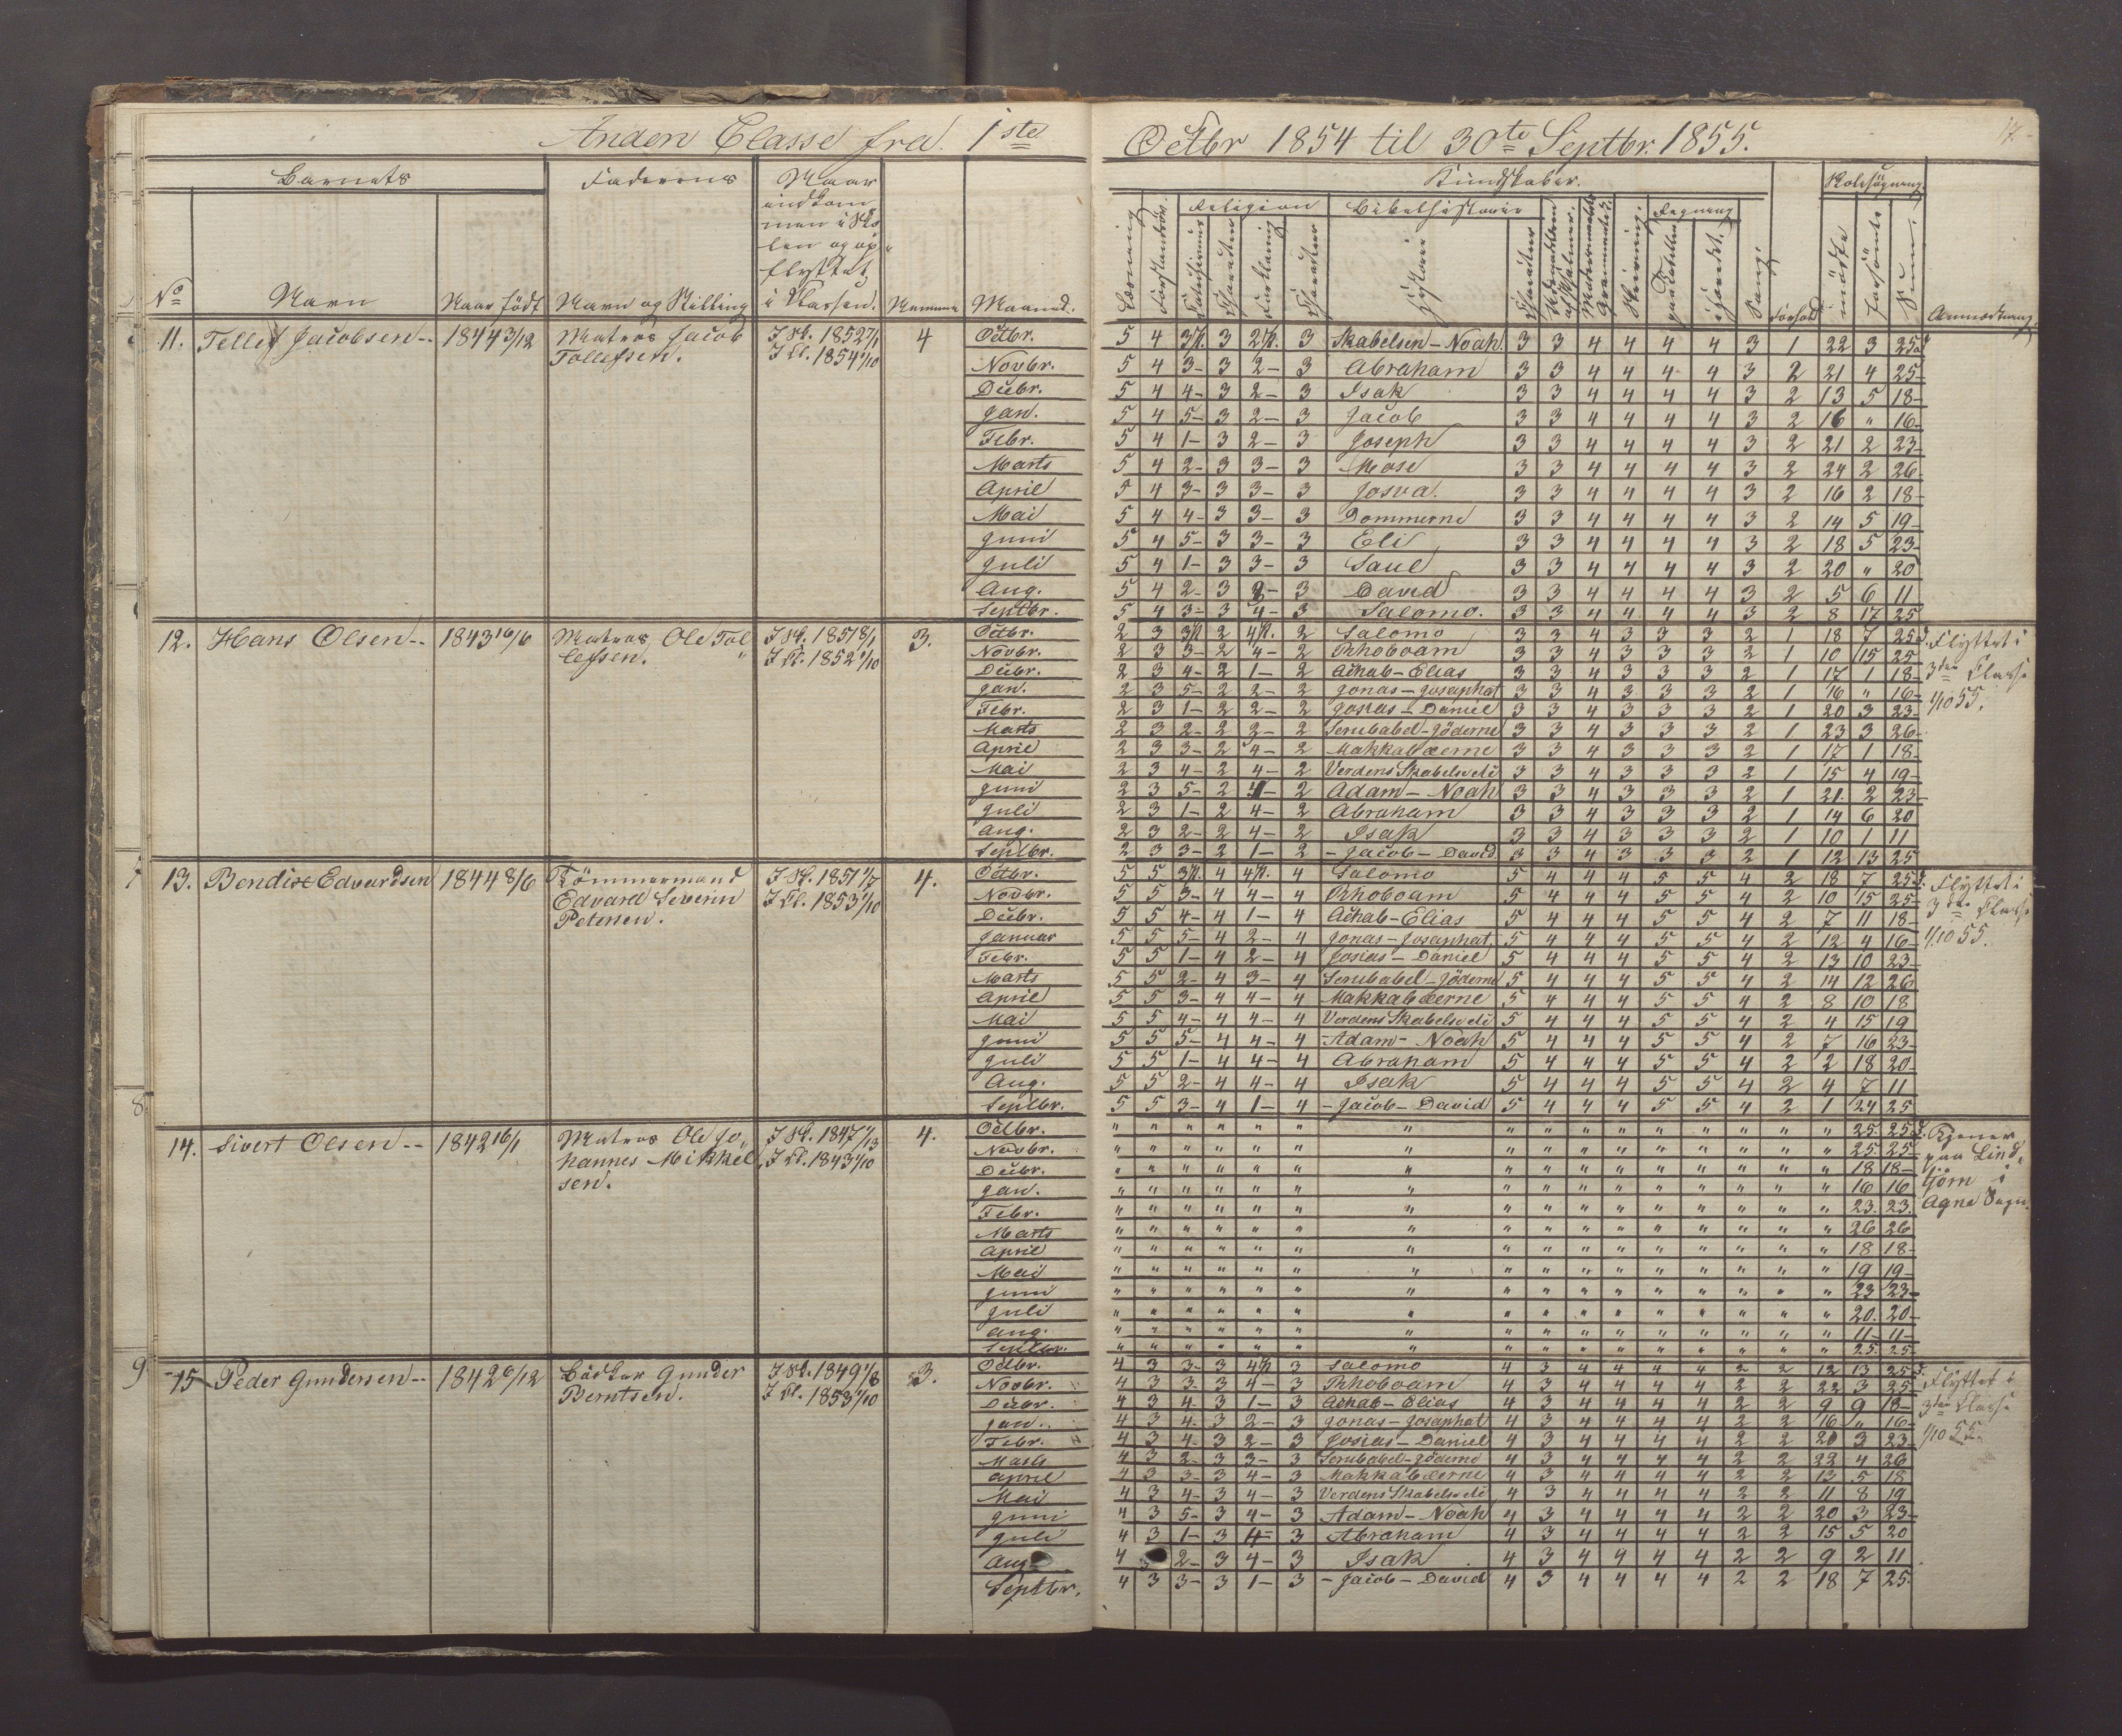 Anden Classe fra 1ste Octbr 1854 til 30te Septbr. 1855.
17.
Barnets Faderens Naar Kundskaber. Skolesøgning
indkom
men i Sko
len og op
flyttet
i Klassen.
Religion Bibelhistorie Regning
No Navn Naar født Navn og Stilling Nummer Maaned. Læsning Forstandsøv. Forklaring Historie Skrivning. paa Tavlen i Hovedet. Sang. Forhold mødte forsømte Sum. Anmærkning.
11. Tellef Jacobsen-- 1844 3/12 Matros Jacob Tollefsen. I Sk. 1852 7/1 I Kl. 1854 1/10 4
Octbr. 5 4 3 3 2 3 Skabelsen-Noah. 3 3 4 4 4 4 3 1 22 3 25
Novbr. 5 4 3- 3 2- 3 Abraham 3 3 4 4 4 4 3 2 21 4 25-
Decbr. 5 4 4- 3 2- 3 Isak 3 3 4 4 4 4 3 2 13 5 18-
Jan. 5 4 5- 3 2- 3 Jacob 3 3 4 4 4 4 3 2 16 " 16-
Febr. 5 4 1- 3 2- 3 Joseph 3 3 4 4 4 4 3 2 21 2 23-
Marts 5 4 2- 3 3- 3 Mose 3 3 4 4 4 4 3 2 24 2 26-
April 5 4 3- 3 3- 3 Josva. 3 3 4 4 4 4 3 2 16 2 18-
Mai 5 4 4- 3 3- 3 Dommerne 3 3 4 4 4 4 3 2 14 5 19-
Juni 5 4 5- 3 3- 3 Eli 3 3 4 4 4 4 3 2 18 5 23-
Juli 5 4 1- 3 3- 3 Saul 3 3 4 4 4 4 3 2 20 " 20
Aug. 5 4 2- 3 3 David 3 3 4 4 4 4 3 2 5 6 11
Septbr. 5 4 3- 3 4- 3 Salomo. 3 3 4 4 4 4 3 2 8 17 25
12. Hans Olsen-- 1843 16/6 Matros Ole Tol lefsen. I Sk. 1851 8/1 I Kl. 1852 1/10 3. Flyttet i 3die Classe 1/10 55.
Octbr. 2 3 3 2 4 2 Salomo 3 3 4 3 3 3 2 1 18 7 25
Novbr. 2 3 3- 2 4- 2 Rhoboam 3 3 4 3 3 3 2 1 10 15 25
Decbr. 2 3 4- 2 1- 2 Achab-Elias 3 3 4 3 3 3 2 1 17 1 18-
Jan. 2 3 5- 2 2- 2 Jonas-Josaphat 3 3 4 3 3 3 2 1 16 " 16-
Febr. 2 3 1- 2 2- 2 Josias-Daniel 3 3 4 3 3 3 2 1 20 3 23-
Marts 2 3 2- 2 2- 2 Serubabel-Jöderne 3 3 4 3 3 3 2 1 23 3 26-
April 2 3 3- 2 4- 2 Makkabæerne 3 3 4 3 3 3 2 1 17 1 18-
Mai 2 3 4- 2 4- 2 Verdens Skabelse 3 3 4 3 3 3 2 1 15 4 19-
Juni 2 3 5- 2 4- 2 Adam-Noah 3 3 4 3 3 3 2 1 21. 2 23-
Juli 2 3 1- 2 4- 2 Abraham 3 3 4 3 3 3 2 1 14 6 20
Aug. 2 3 2- 2 4- 2 Isak 3 3 4 3 3 3 2 1 10 1 11
Septbr. 2 3 3- 2 1- 2 -Jacob-David 3 3 4 3 3 3 2 1 12 13 25
13. Bendix Edvardsen 1844 8/6 Tømmermand Edvard Severin Petersen. I Sk. 1851 1/7 I Kl. 1853 1/10 4. Flyttet i 3die Classe 1/10 55.
Octbr. 5 5 3 4 4 4 Salomo 5 4 4 4 5 5 4 2 18 7 25
Novbr. 5 5 3- 4 4- 4 Rhoboam 5 4 4 4 5 5 4 2 10 15 25-
Decbr. 5 5 4- 4 1- 4 Achab-Elias 5 4 4 4 5 5 4 2 7 11 18-
Januar 5 5 5- 4 2- 4 Jonas-Josaphat 5 4 4 4 5 5 4 2 12 4 16-
Febr. 5 5 1- 4 2- 4 Josias-Daniel 5 4 4 4 5 5 4 2 13 10 23-
Marts 5 5 2- 4 3- 4 Serubabel-Jöderne 5 4 4 4 5 5 4 2 14 12 26
April 5 5 3- 4 4- 4 Makkabæerne 5 4 4 4 5 5 4 2 8 10 18
Mai 5 5 4- 4 4- 4 Verdens Skabelse 5 4 4 4 5 5 4 2 4 15 19
Juni 5 5 5- 4 4- 4 -Adam-Noah 5 4 4 4 5 5 4 2 7 16 23-
Juli 5 5 1- 4 4- 4 Abraham 5 4 4 4 5 5 4 2 2 18 20-
Aug. 5 5 2- 4 4- 4 Isak 5 4 4 4 5 5 4 2 4 7 11
Septbr. 5 5 3- 4 1- 4 -Jacob-David 5 4 4 4 5 5 4 2 1 24 25
14. Sivert Olsen-- 1842 16/1 Matros Ole Jo, hannes Mikkel, sen. I Sk. 1847 I Kl. 1843 1/10 4. Tjener paa Lind, tjörn i Agne Sogn.
Octbr. " " " " " " " " " " " " " " " " 25. 25
Novbr. " " " " " " " " " " " " " " " " 25. 25-
Decbr. " " " " " " " " " " " " " " " " 18 18-
Jan. " " " " " " " " " " " " " " " " 16 16
Febr. " " " " " " " " " " " " " " " " 23. 23
Marts " " " " " " " " " " " " " " " " 26 26
April " " " " " " " " " " " " " " " " 18 18-
Mai " " " " " " " " " " " " " " " " 19 19-
Juni " " " " " " " " " " " " " " " " 23 23-
Juli " " " " " " " " " " " " " " " " 20. 20-
Aug. " " " " " " " " " " " " " " " " 11- 11-
Septbr. " " " " " " " " " " " " " " " " 25. 25
15 Peder Gundersen-- 1842 6/12 Bödker Gunder Berntsen. I Sk. 1849 1/8 I Kl. 1853 1/10 3. Flyttet i 3die Classe 1/10 55.
Octbr. 4 3 3- 3 4 3 Salomo 4 3 4 4 4 4 2 2 12 13 25
Novbr. 4 3 3- 3 4- 3 Rhoboam 4 3 4 4 4 4 2 2 22 3 25
Decbr. 4 3 4- 3 1- 3 Achab-Elias 4 3 4 4 4 4 2 2 9 9 18-
Jan. 4 3 4- 3 2- 3 Jonas-Josaphat 4 3 4 4 4 4 2 2 16 " 16-
Febr. 4 3 4- 3 2- 3 Josias-Daniel 4 3 4 4 4 4 2 2 20 3 23-
Marts 4 3 2- 3 3- 3 Serubabel-Jöderne 4 3 4 4 4 4 2 2 22 4 26
April 4 3 3- 3 4- 3 Makkabæerne 4 3 4 4 4 4 2 2 13 5 18
Mai 4 3 4- 3 4- 3 Verdens Skabelse 4 3 4 4 4 4 2 2 11 8 19
Juni 4 3 5- 3 4- 3 Adam-Noah 4 3 4 4 4 4 2 2 20 3 23-
Juli 4 3 1- 3 4- 3 Abraham 4 3 4 4 4 4 2 2 15 5 20
Aug. 4 2- 3 4- 3 Isak 4 3 4 4 4 4 2 2 9 2 11
Septbr. 4 3 3- 3 1- 3 -Jacob-David 4 3 4 4 4 4 2 2 18 7 25.
7
8
9